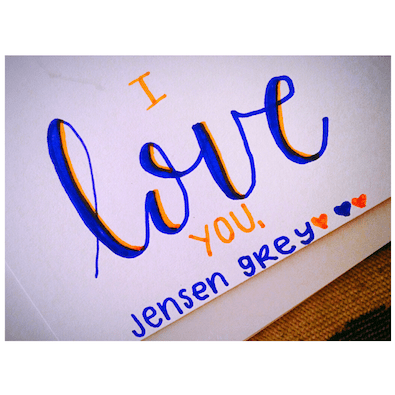 I
love
YOU,
Jensen gREy